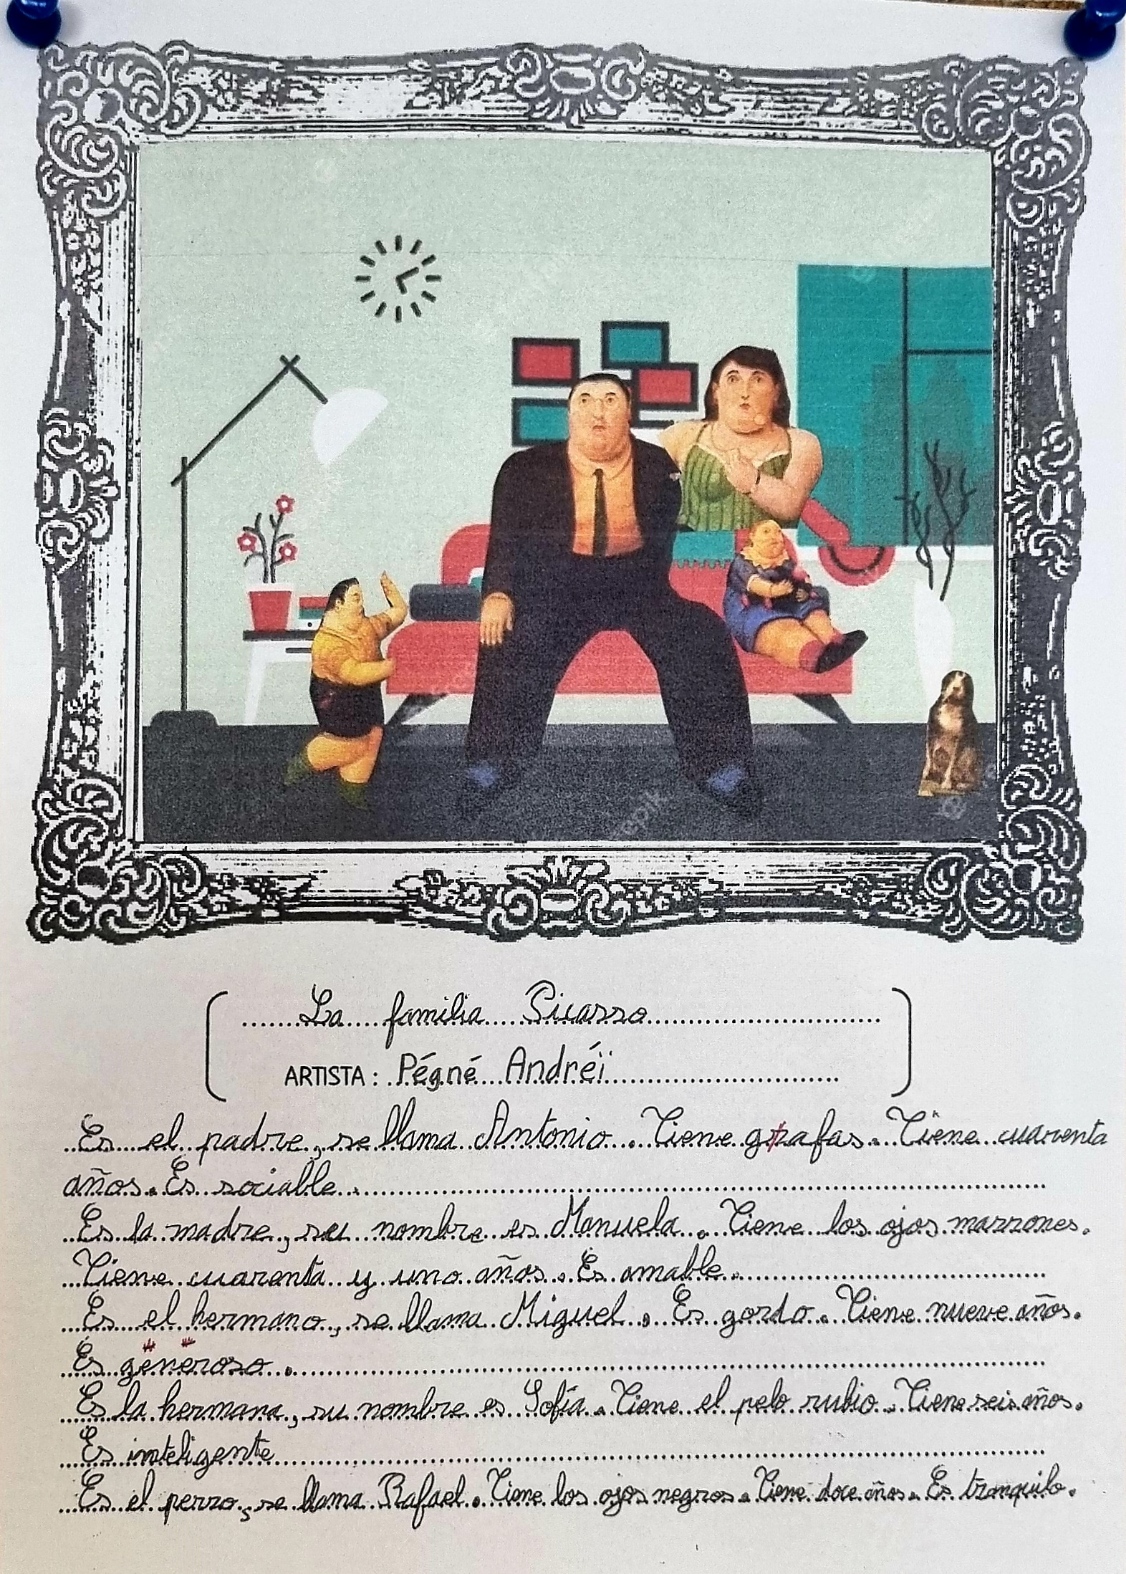 La familia Picasso
ARTISTA : Pégné Andréï
Es el padre, se llama Antonio. Tiene grafas. Tiene cuarenta
años. Es sociable.
Es la madre, su nombre es Manuela. Tiene los ojos marrones.
Tiene cuarenta y uno años. Es amable.
Es el hermano, se llama Miguel. Es gordo. Tiene nueve años.
Es generoso.
Es la hermana, su nombre es Sofía. Tiene el pelo rubio. Tiene seis años.
Es inteligente
Es el perro, se llama Rafael. Tiene los ojos negros. Tiene doce años. Es tranquilo.